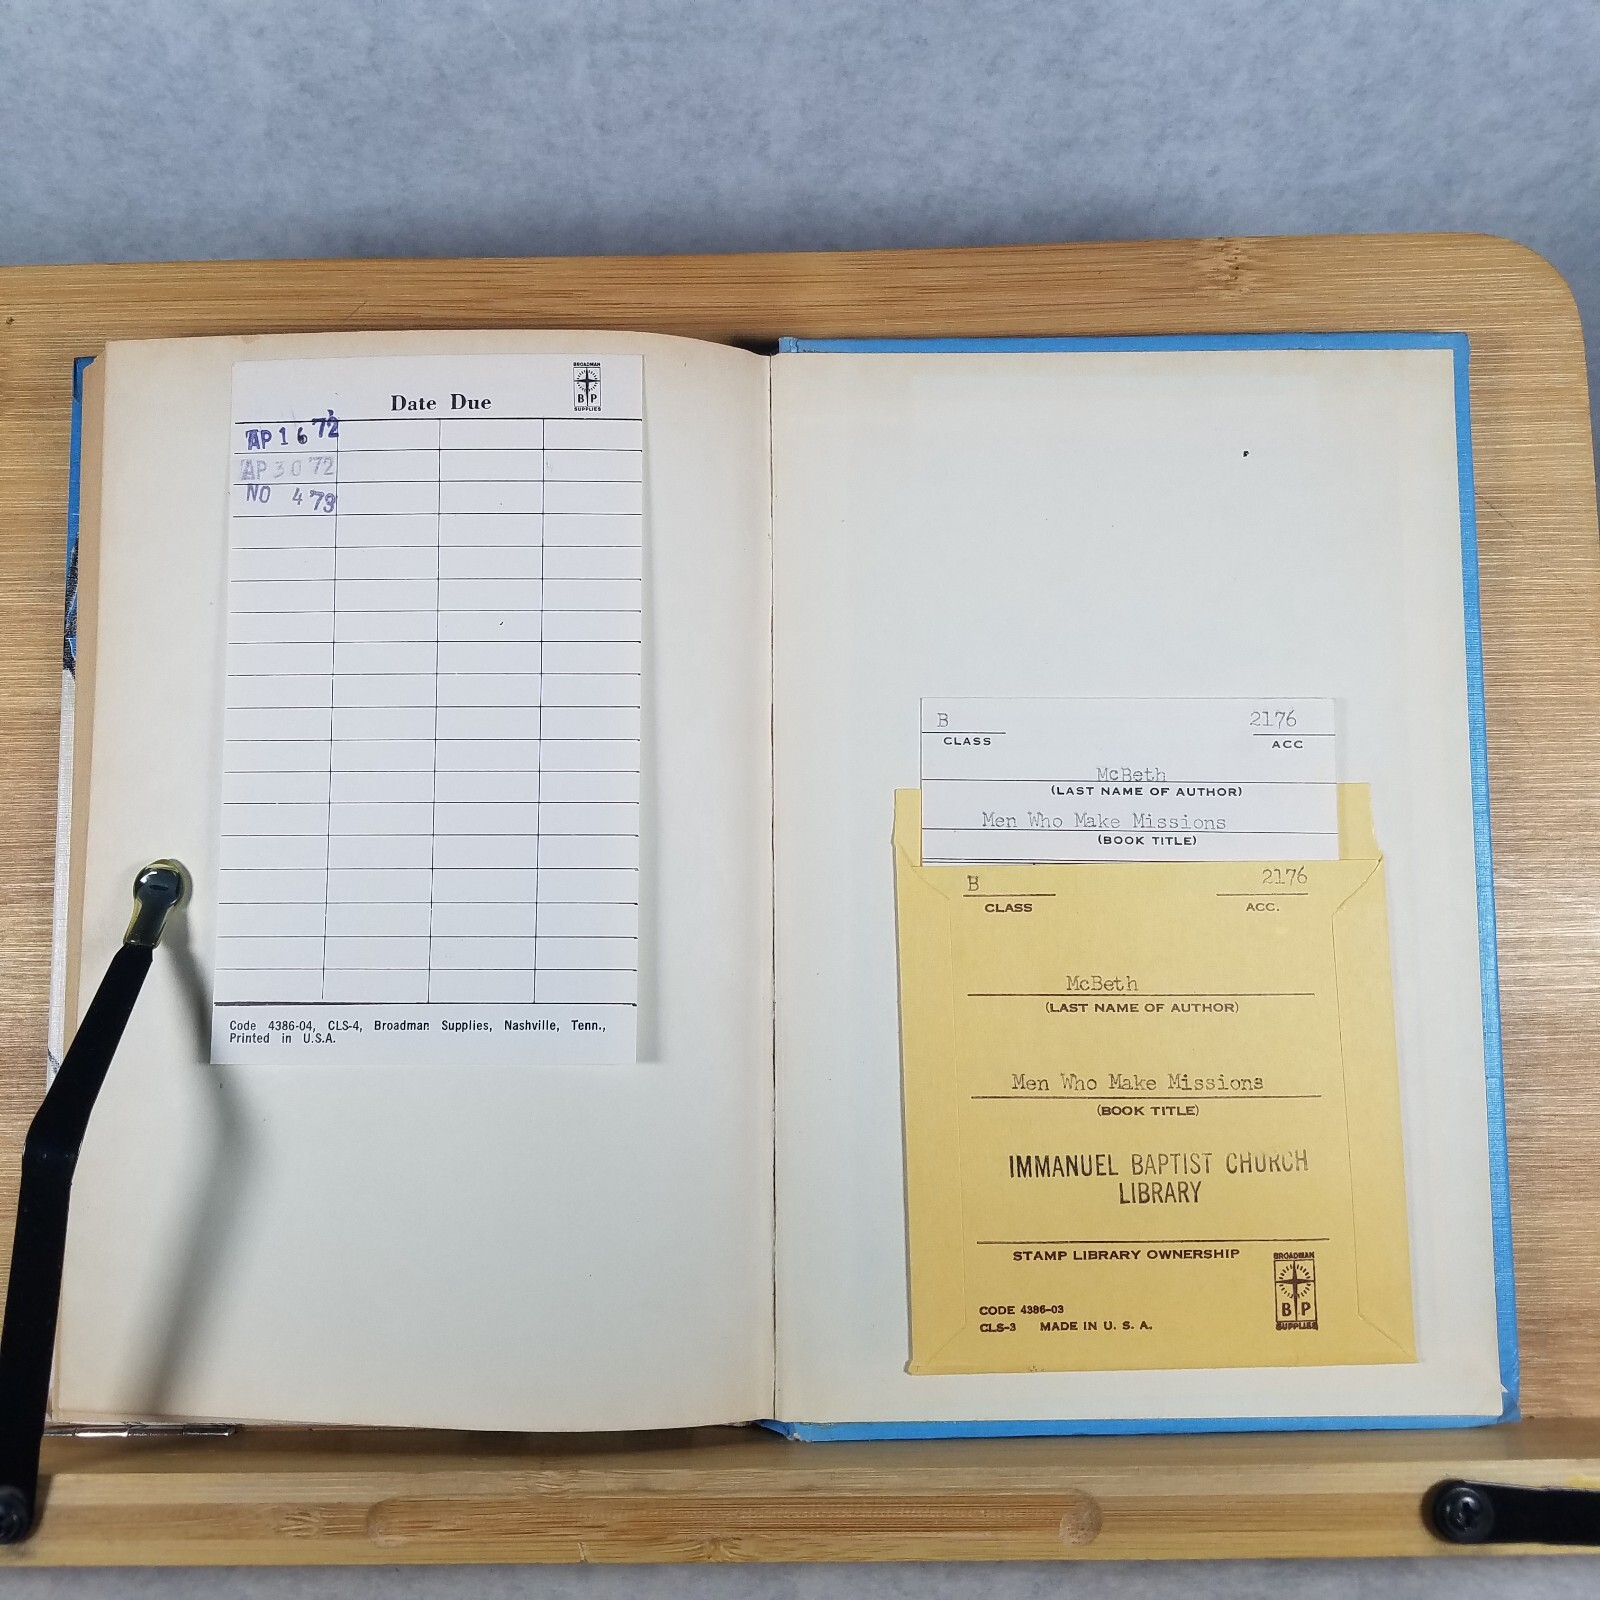 BROADMAN
B P
SUPPLIES
Date Due
AP 16 '72
AP 30 '72
NO 4 '73
Code 4386-04, CLS-4, Broadman Supplies, Nashville, Tenn.,
Printed in U.S.A.
B 2176
CLASS ACC
McBeth
(LAST NAME OF AUTHOR)
Men Who Make Missions
(BOOK TITLE)
B 2176
CLASS ACC.
McBeth
(LAST NAME OF AUTHOR)
Men Who Make Missions
(BOOK TITLE)
IMMANUEL BAPTIST CHURCH
LIBRARY
STAMP LIBRARY OWNERSHIP
BROADMAN
B P
SUPPLIES
CODE 4386-03
CLS-3 MADE IN U. S. A.